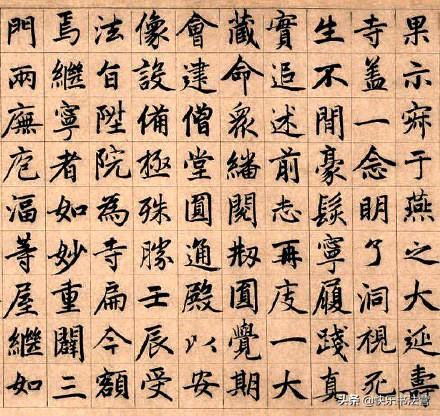 果示寂于燕之大延壽
寺盖一念明了洞視死
生不間豪髮寧履踐真
實追述前志再度一大
藏命眾繙閱刱圓覺期
會建僧堂圓通殿以安
像設備極殊勝壬辰受
法旨陞院為寺扁今額
焉繼寧者如妙重闢三
門兩廡庖湢等屋繼如
头条 @快乐书法